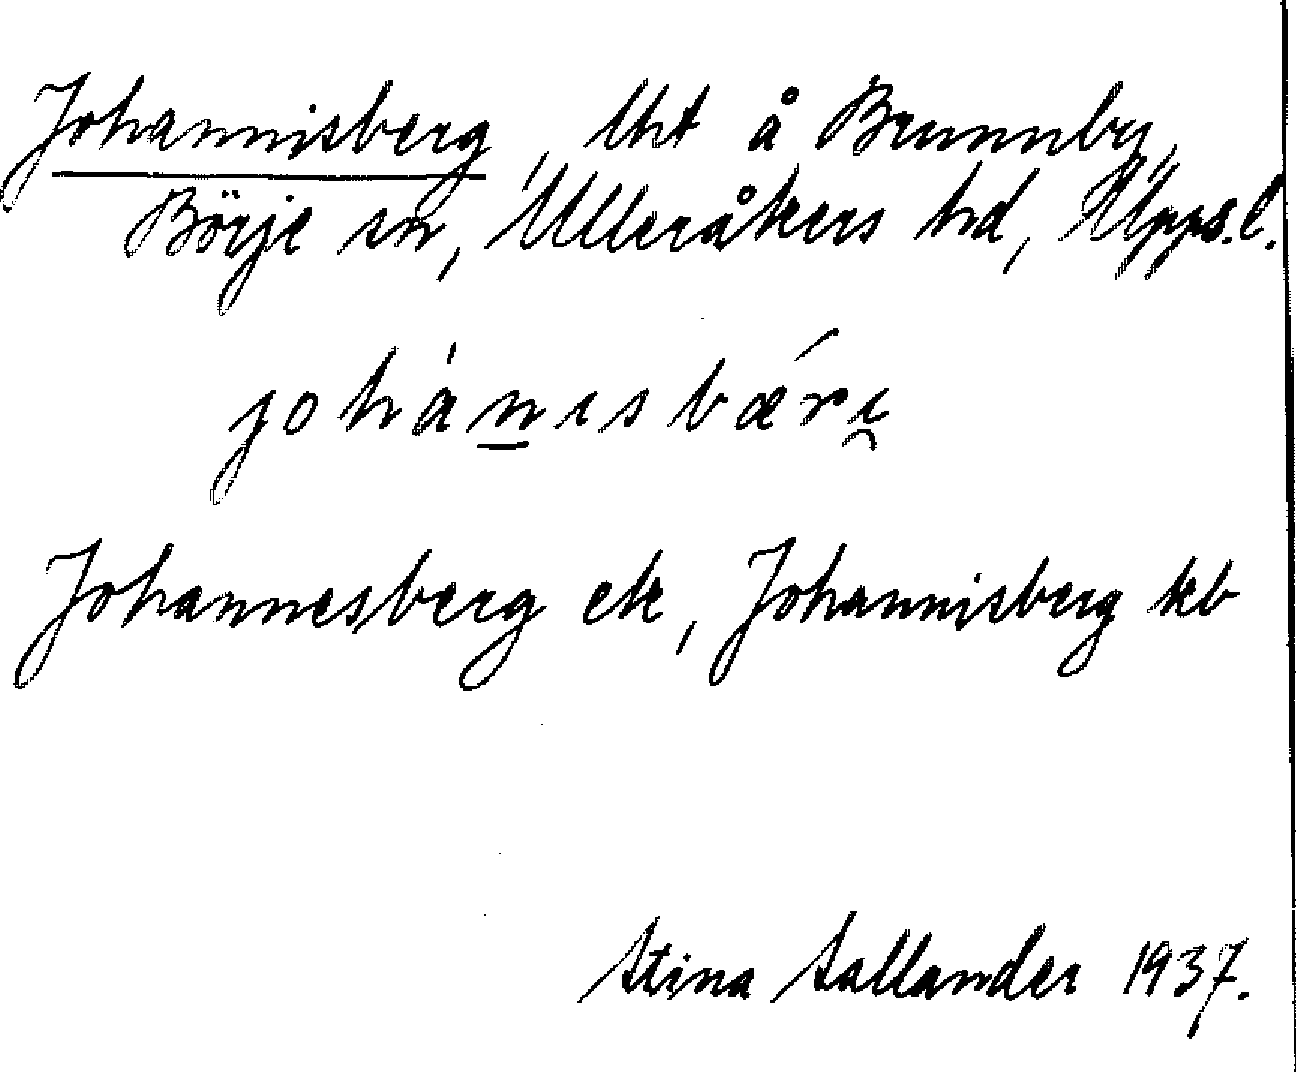 Johannisberg, lht å Brunnby,
Börje sn, Ulleråkers hd, Upps.l.
johánisbǽri̯
Johannesberg ek, Johannisberg kb
Stina Sallander 1937.